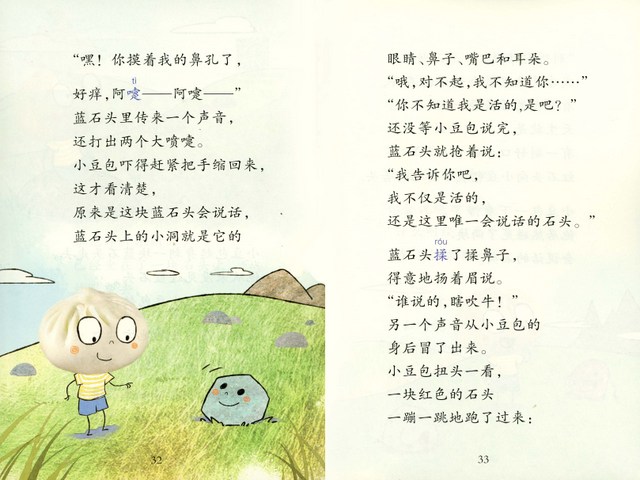 “嘿！你摸着我的鼻孔了，
tì
好痒，阿嚏——阿嚏——”
蓝石头里传来一个声音，
还打出两个大喷嚏。
小豆包吓得赶紧把手缩回来，
这才看清楚，
原来是这块蓝石头会说话，
蓝石头上的小洞就是它的
32
眼睛、鼻子、嘴巴和耳朵。
“哦，对不起，我不知道你……”
“你不知道我是活的，是吧？”
还没等小豆包说完，
蓝石头就抢着说：
“我告诉你吧，
我不仅是活的，
还是这里唯一会说话的石头。”
róu
蓝石头揉了揉鼻子，
得意地扬着眉说。
“谁说的，瞎吹牛！”
另一个声音从小豆包的
身后冒了出来。
小豆包扭头一看，
一块红色的石头
一蹦一跳地跑了过来：
33